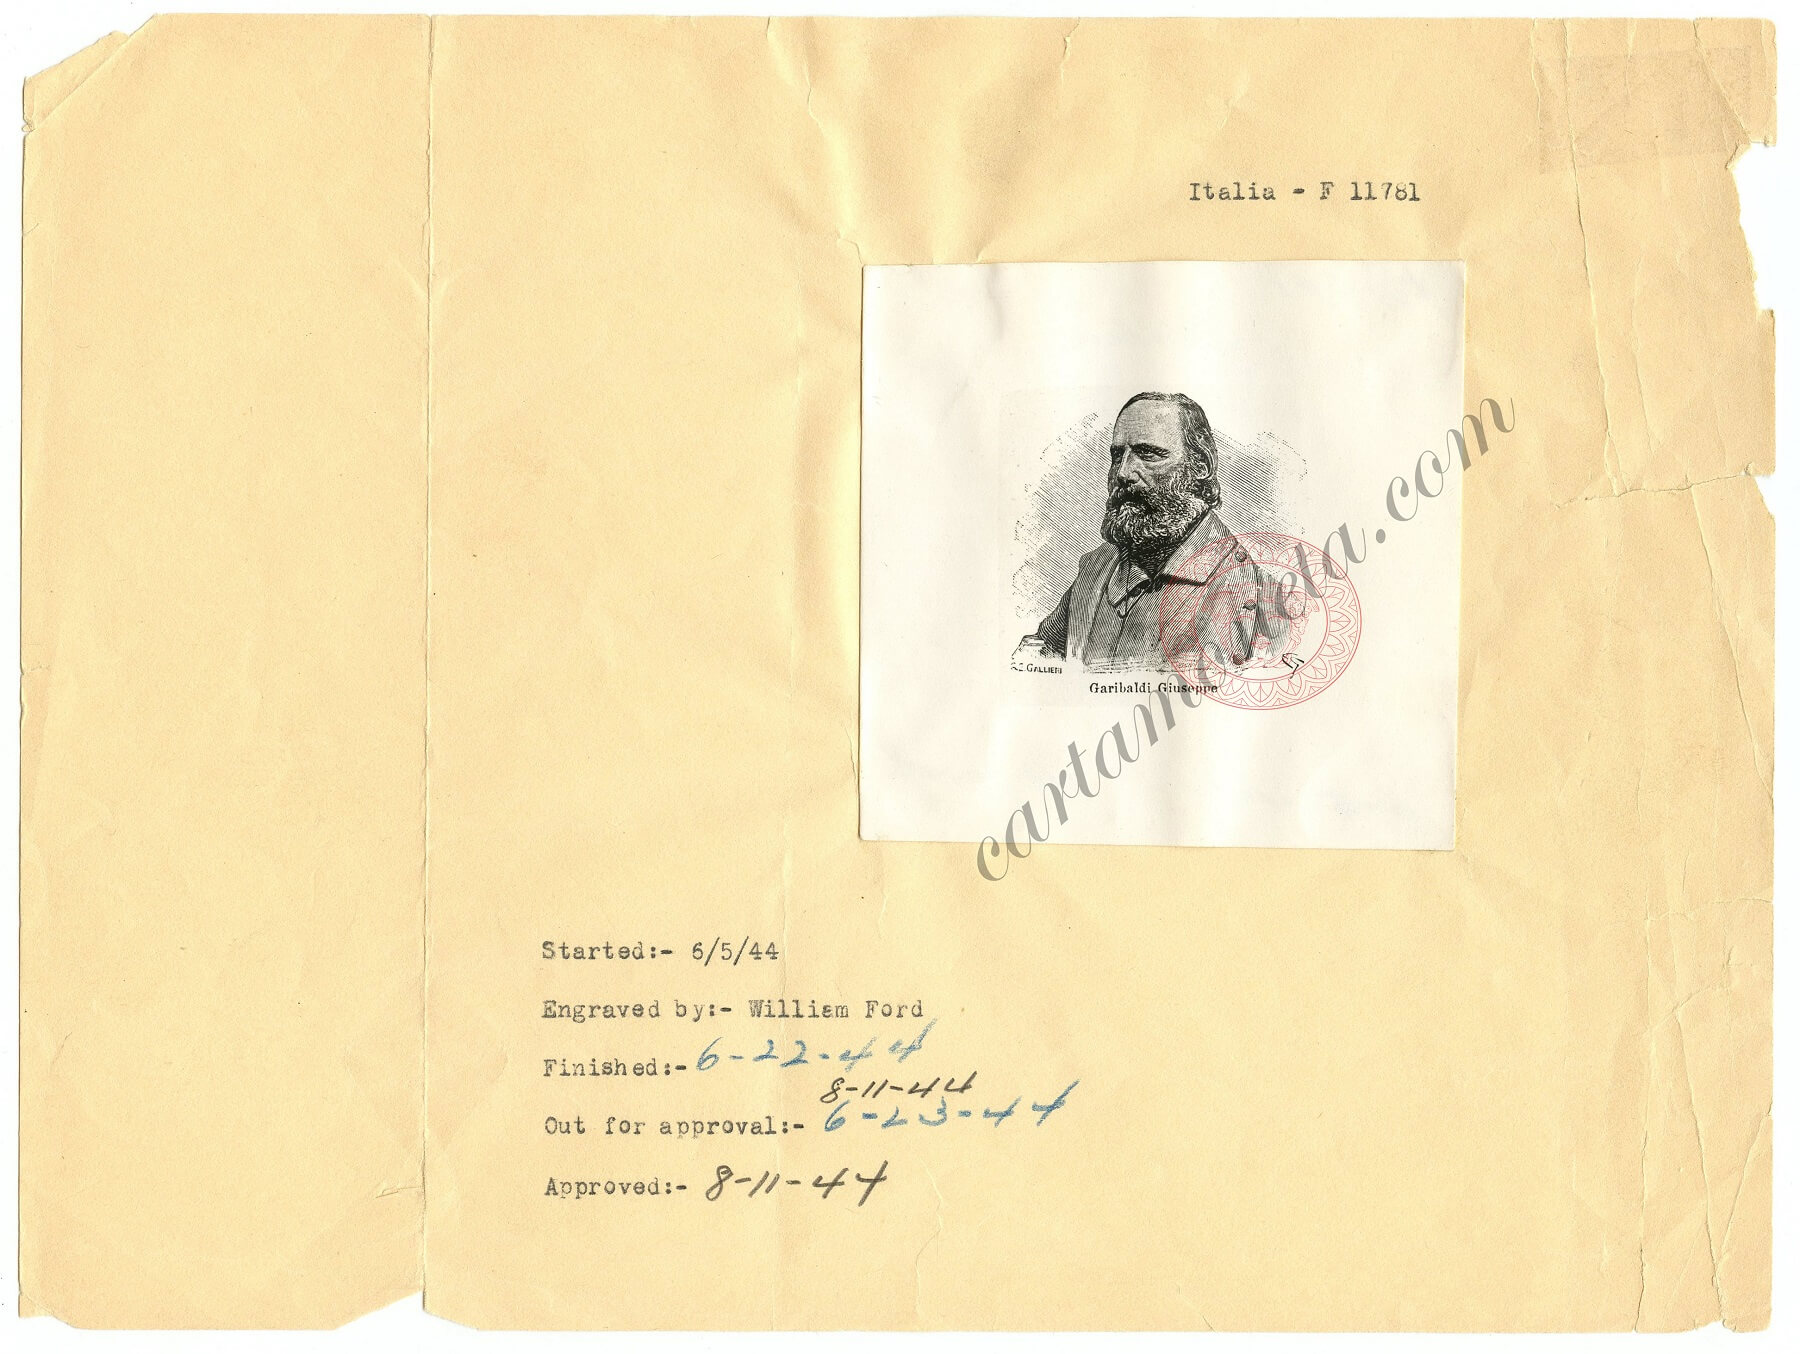 Italia - F 11781
C.E.GALLIERI
Garibaldi Giuseppe
cartamoneta.com
Started:- 6/5/44
Engraved by:- William Ford
Finished:- 6-22-44
8-11-44
Out for approval:- 6-23-44
Approved:- 8-11-44